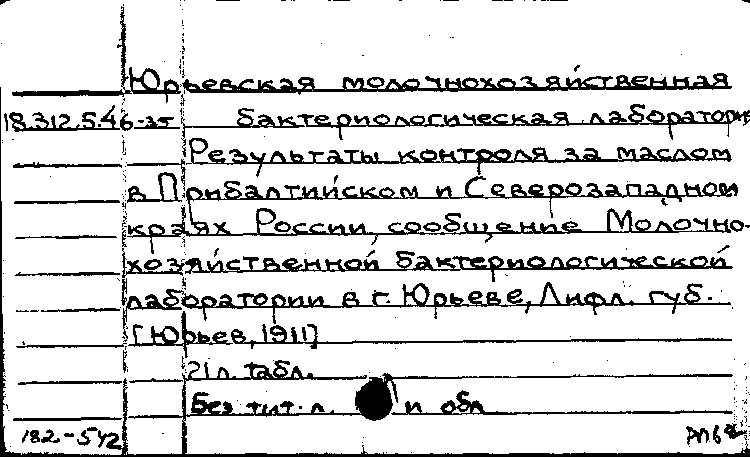 Юрьевская молочнохозяйственная
18.312.546-35 бактериологическая лаборатория
Результаты контроля за маслом
в Прибалтийском и Северозападном
краях России, сообщение Молочно-
хозяйственной бактериологической
лаборатории в г. Юрьеве, Лифл. губ.
[Юрьев, 1911]
21 л. табл.
Без тит. л. и обл
182-542